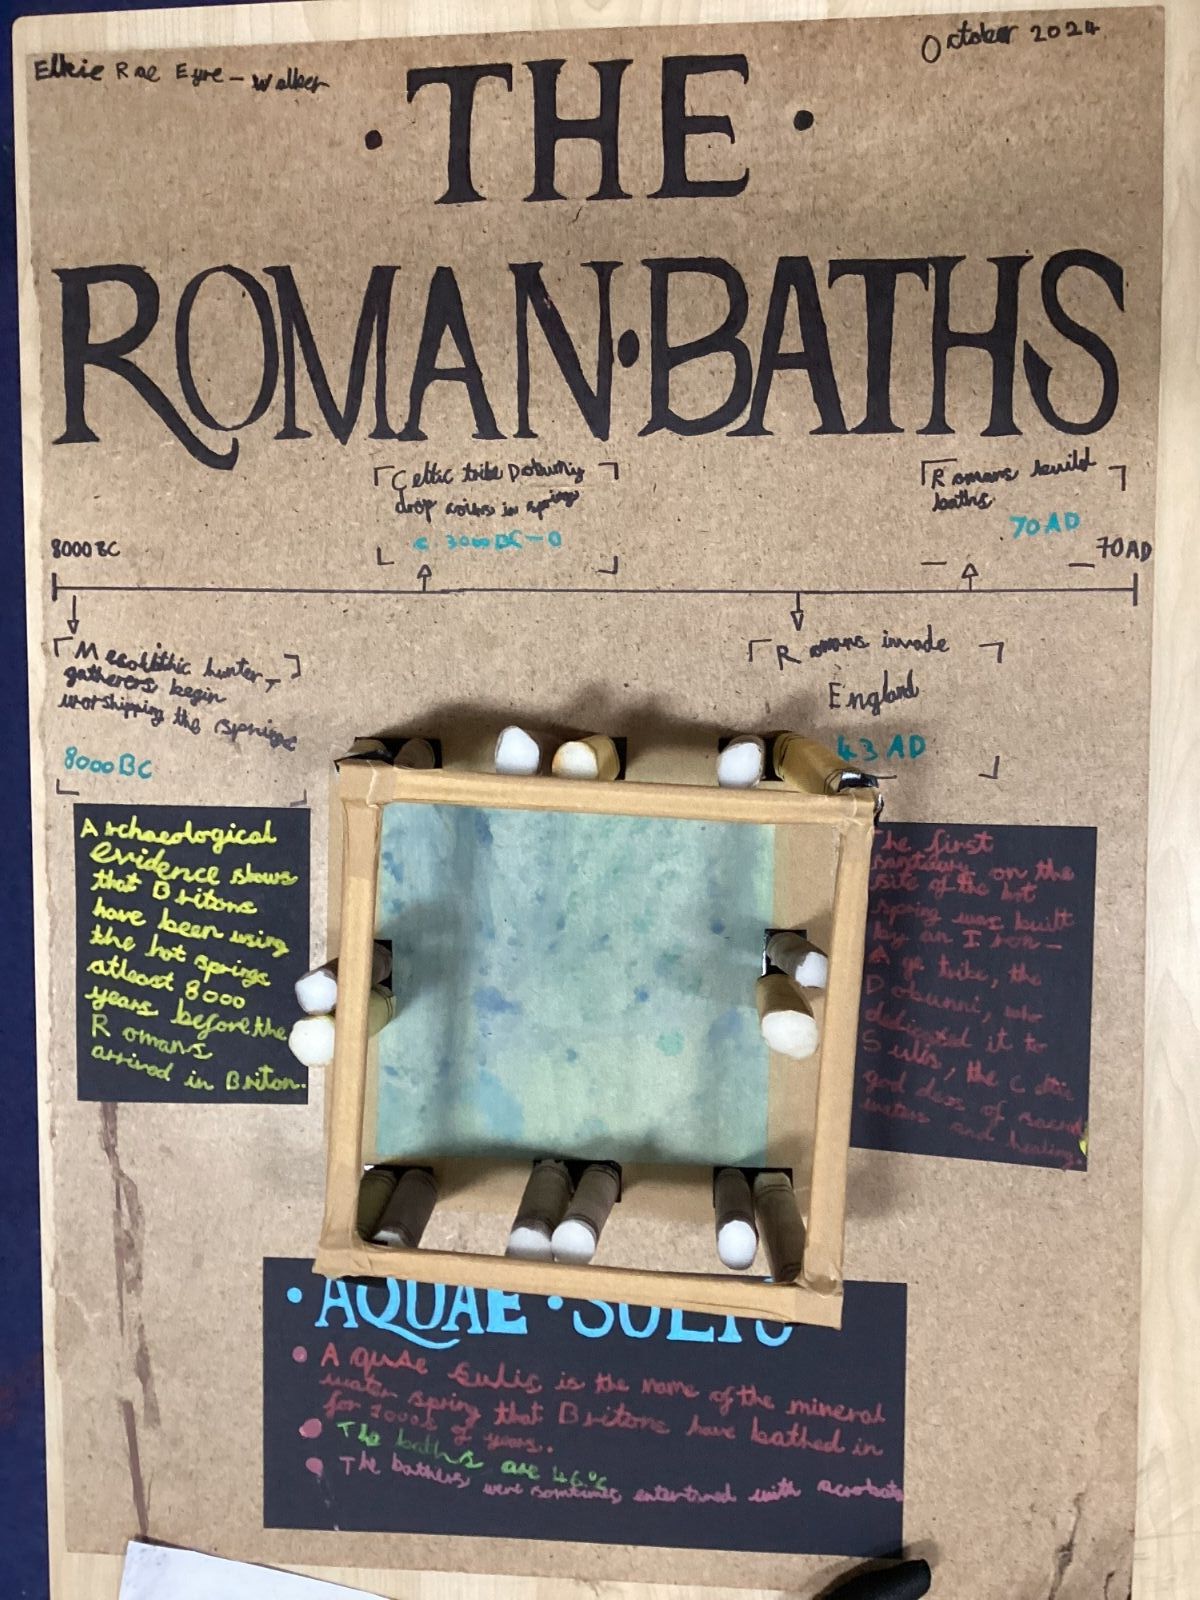 Elkie Rae Eyre-Walker
October 2024
·THE·
ROMAN·BATHS
Celtic tribe Dobunny
drop coins in springs
c. 3000 BC-0
Romans build
baths
70AD
8000BC
70AD
Mesolithic hunter-
gatherers begin
worshipping the springs
8000BC
Romans invade
England
43 AD
Archaeological
evidence shows
that Britons
have been using
the hot springs
atleast 8000
years before the
Romans
arrived in Briton.
The first
sanctuary on the
site of the hot
spring was built
by an Iron-
Age tribe, the
Dobunni, who
dedicated it to
Sulis, the Celtic
goddess of sacred
waters and healing.
·AQUAE·SULIS
Aquae Sulis is the name of the mineral
water spring that Britons have bathed in
for 1000s of years.
The baths are 46°c
The bathers were somtimes entertained with acrobats